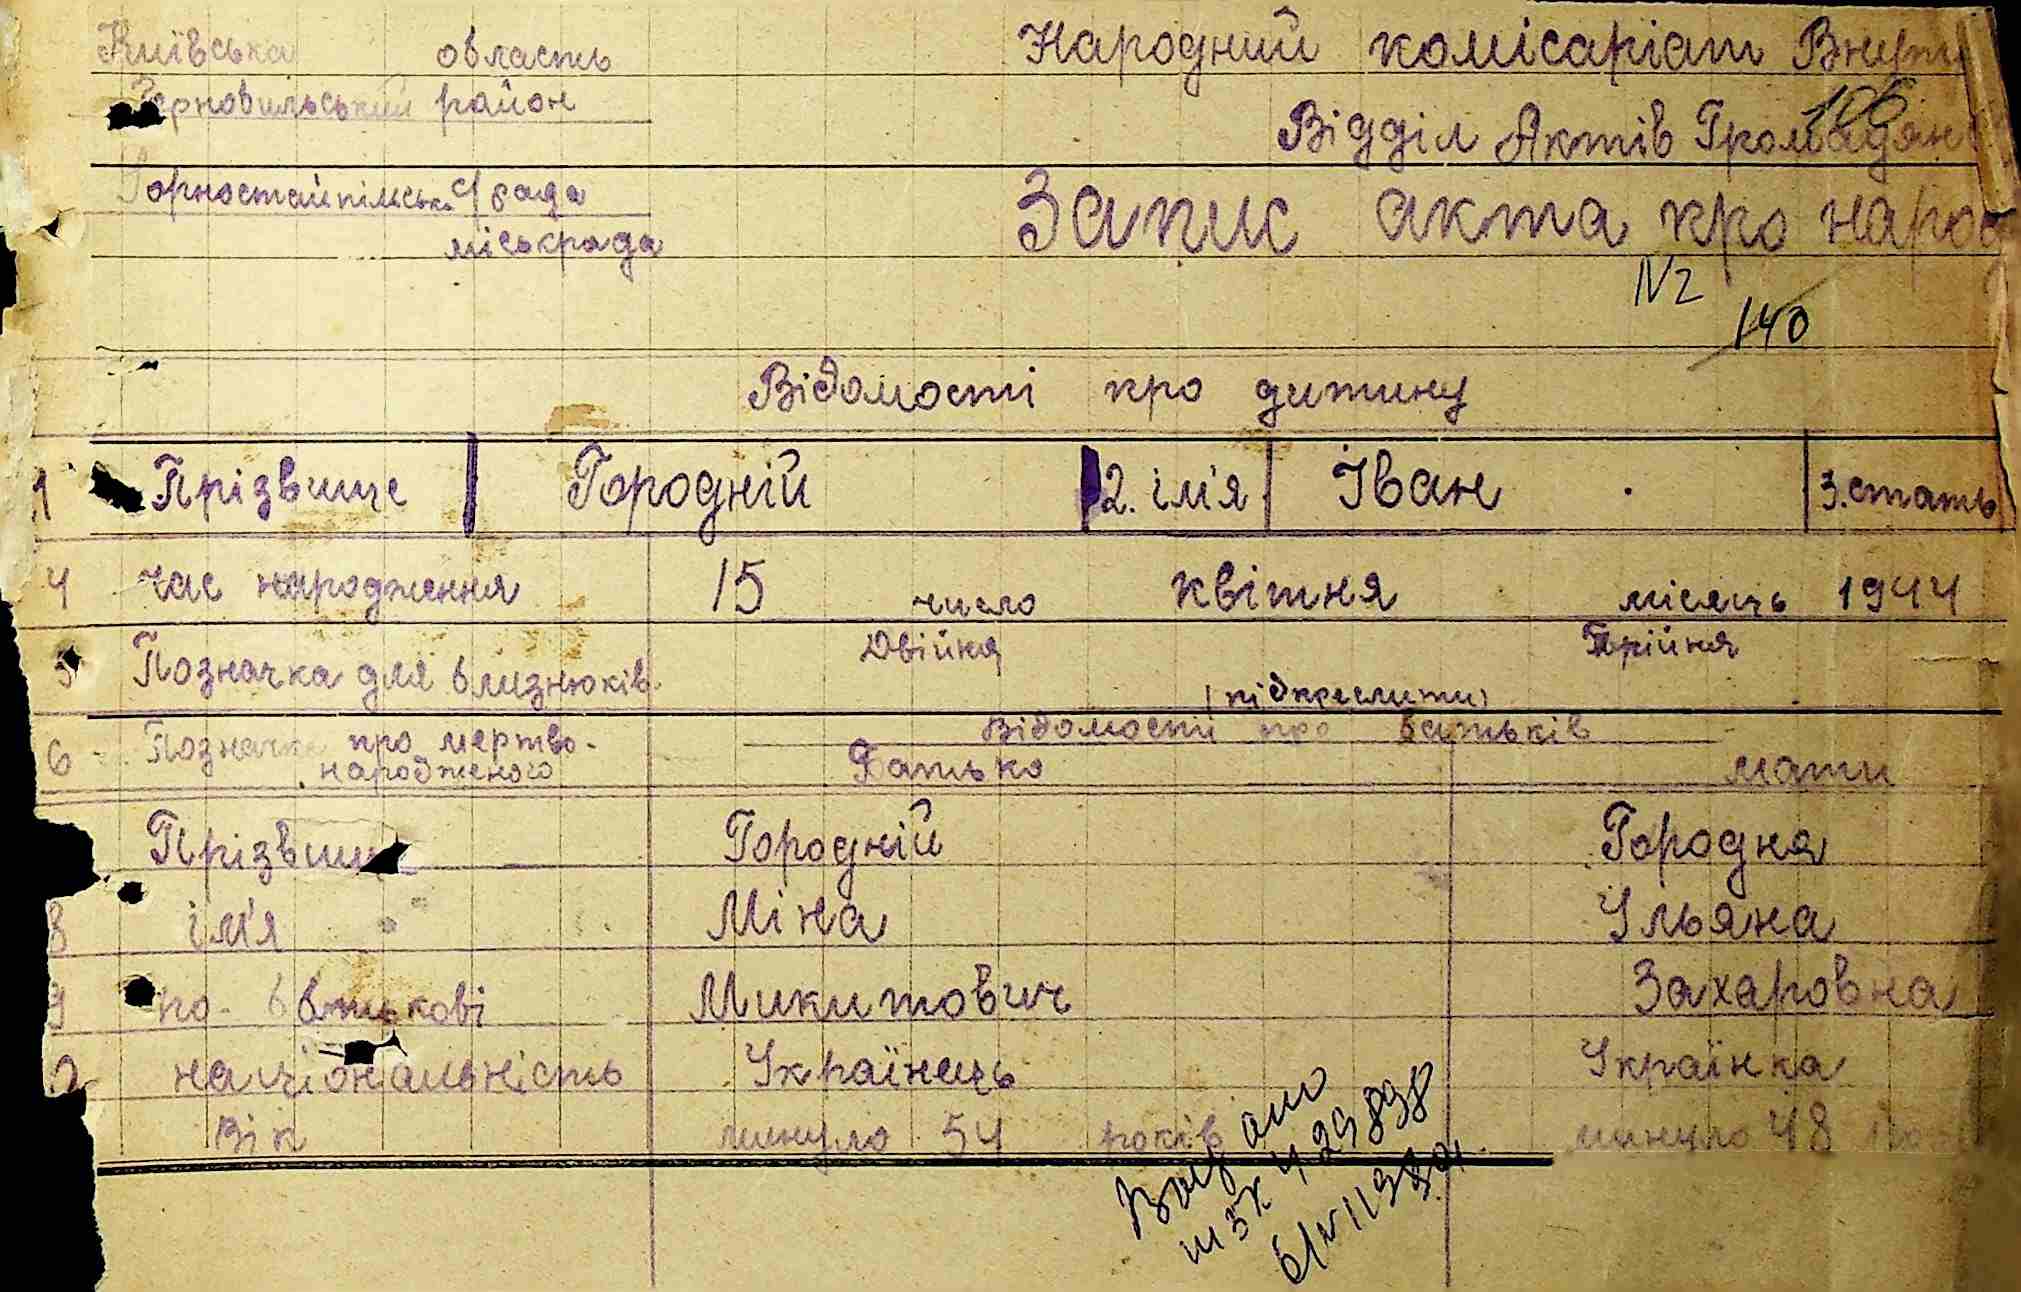 Київська область
Народний комісаріат Внут
Чорновильський район
106
Відділ Актів Громадян
Горностайпільськ. с/рада
міськрада
Запис акта про народ
№ 140
Відомості про дитину
1 Прізвище Городній 2. ім'я Іван 3. стать
4 час народження 15 число квітня місяць 1944
5 Позначка для близнюків. Двійня Трійня
(підкреслити)
Відомості про батьків
6 Позначка про мертво-
народженого Батько мати
Прізвище Городній Городня
8 ім'я Міна Ульяна
9 по батькові Микитович Захаровна
національність Українець Українка
Вік минуло 54 років минуло 48